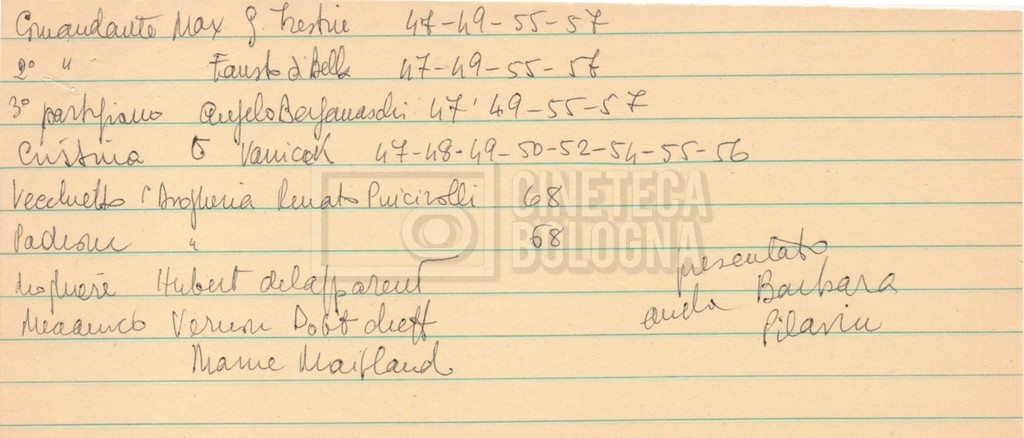 Comandante Max G. Trestie 47-49-55-57
2° " Fausto d'Bella 47-49-55-57
3° partigiano Angelo Bergamaschi 47' 49-55-57
Cristina Vanicek 47-48-49-50-52-54-55-56
Vecchietto Drogheria Renato 68
Padrone " 68
CINETECA
BOLOGNA
Hubert delapparent
presentato
Vernon Dobtcheff
anda Barbara
Marne Maitland
Pilavin